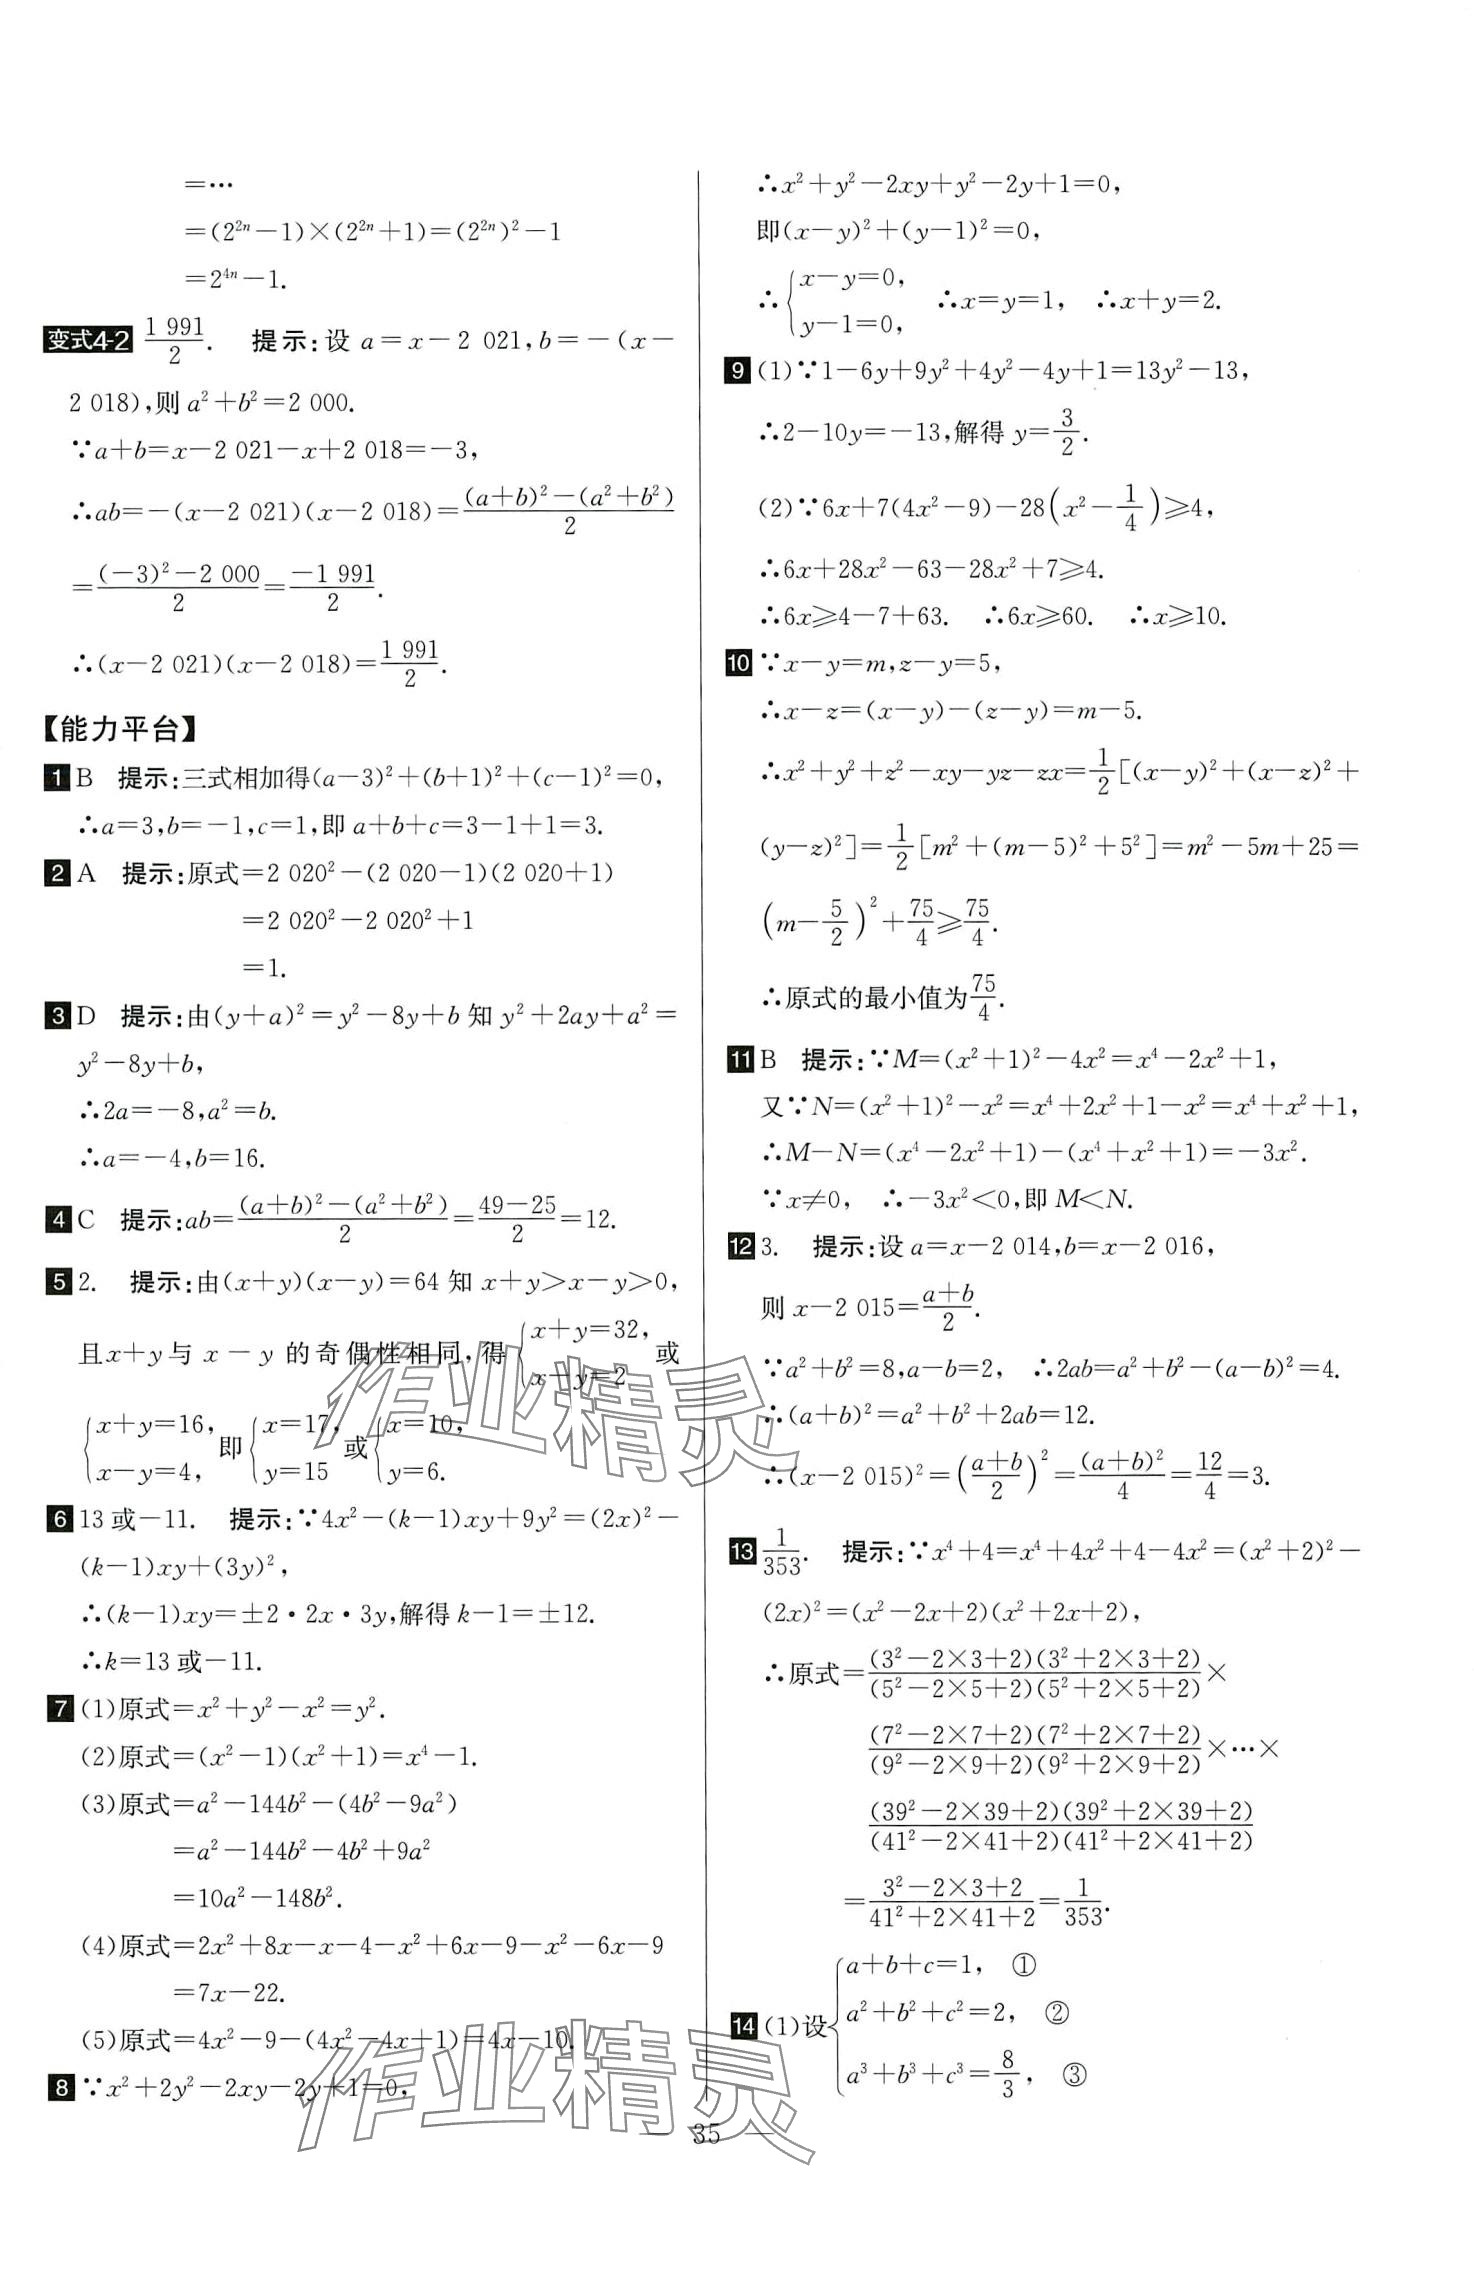 =…
=(2²ⁿ-1)×(2²ⁿ+1)=(2²ⁿ)²-1
=2⁴ⁿ-1.
变式4-2 1 991/2. 提示:设 a=x-2 021,b=-(x-
2 018),则 a²+b²=2 000.
∵a+b=x-2 021-x+2 018=-3,
∴ab=-(x-2 021)(x-2 018)=((a+b)²-(a²+b²))/2
=((-3)²-2 000)/2=-1 991/2.
∴(x-2 021)(x-2 018)=1 991/2.
【能力平台】
1 B 提示:三式相加得(a-3)²+(b+1)²+(c-1)²=0,
∴a=3,b=-1,c=1,即 a+b+c=3-1+1=3.
2 A 提示:原式=2 020²-(2 020-1)(2 020+1)
=2 020²-2 020²+1
=1.
3 D 提示:由(y+a)²=y²-8y+b 知 y²+2ay+a²=
y²-8y+b,
∴2a=-8,a²=b.
∴a=-4,b=16.
4 C 提示:ab=((a+b)²-(a²+b²))/2=(49-25)/2=12.
5 2. 提示:由(x+y)(x-y)=64 知 x+y>x-y>0,
且x+y与 x-y 的奇偶性相同,得{x+y=32, x-y=2 或
{x+y=16, x-y=4, 即{x=17, y=15 或{x=10, y=6.
6 13 或-11. 提示:∵4x²-(k-1)xy+9y²=(2x)²-
(k-1)xy+(3y)²,
∴(k-1)xy=±2·2x·3y,解得 k-1=±12.
∴k=13 或-11.
7 (1)原式=x²+y²-x²=y².
(2)原式=(x²-1)(x²+1)=x⁴-1.
(3)原式=a²-144b²-(4b²-9a²)
=a²-144b²-4b²+9a²
=10a²-148b².
(4)原式=2x²+8x-x-4-x²+6x-9-x²-6x-9
=7x-22.
(5)原式=4x²-9-(4x²-4x+1)=4x-10.
8 ∵x²+2y²-2xy-2y+1=0,
∴x²+y²-2xy+y²-2y+1=0,
即(x-y)²+(y-1)²=0,
∴{x-y=0, y-1=0, ∴x=y=1, ∴x+y=2.
9 (1)∵1-6y+9y²+4y²-4y+1=13y²-13,
∴2-10y=-13,解得 y=3/2.
(2)∵6x+7(4x²-9)-28(x²-1/4)⩾4,
∴6x+28x²-63-28x²+7⩾4.
∴6x⩾4-7+63. ∴6x⩾60. ∴x⩾10.
10 ∵x-y=m,z-y=5,
∴x-z=(x-y)-(z-y)=m-5.
∴x²+y²+z²-xy-yz-zx=1/2[(x-y)²+(x-z)²+
(y-z)²]=1/2[m²+(m-5)²+5²]=m²-5m+25=
(m-5/2)²+75/4⩾75/4.
∴原式的最小值为75/4.
11 B 提示:∵M=(x²+1)²-4x²=x⁴-2x²+1,
又∵N=(x²+1)²-x²=x⁴+2x²+1-x²=x⁴+x²+1,
∴M-N=(x⁴-2x²+1)-(x⁴+x²+1)=-3x².
∵x≠0, ∴-3x²<0,即 M<N.
12 3. 提示:设 a=x-2 014,b=x-2 016,
则 x-2 015=(a+b)/2.
∵a²+b²=8,a-b=2, ∴2ab=a²+b²-(a-b)²=4.
∴(a+b)²=a²+b²+2ab=12.
∴(x-2 015)²=((a+b)/2)²=(a+b)²/4=12/4=3.
13 1/353. 提示:∵x⁴+4=x⁴+4x²+4-4x²=(x²+2)²-
(2x)²=(x²-2x+2)(x²+2x+2),
∴原式=(3²-2×3+2)(3²+2×3+2)/(5²-2×5+2)(5²+2×5+2)×
(7²-2×7+2)(7²+2×7+2)/(9²-2×9+2)(9²+2×9+2)×…×
(39²-2×39+2)(39²+2×39+2)/(41²-2×41+2)(41²+2×41+2)
=(3²-2×3+2)/(41²+2×41+2)=1/353.
14 (1)设{a+b+c=1, ①
a²+b²+c²=2, ②
a³+b³+c³=8/3, ③
— 35 —
作业精灵
作业精灵